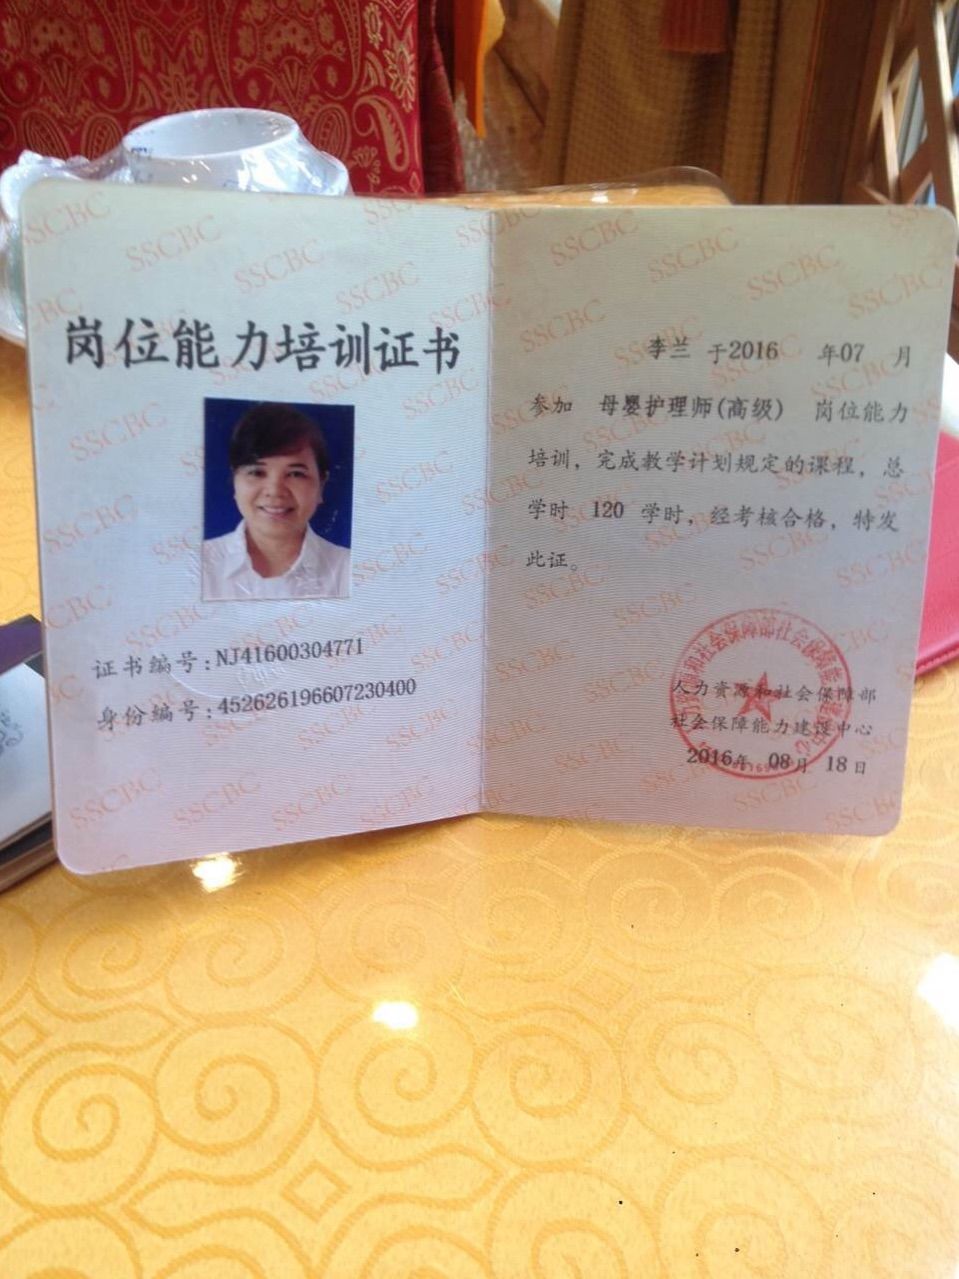 岗位能力培训证书
证书编号:NJ41600304771
身份编号:452626196607230400
李兰 于2016 年07 月
参加 母婴护理师(高级) 岗位能力
培训，完成教学计划规定的课程，总
学时 120 学时，经考核合格，特发
此证。
人力资源和社会保障部
社会保障能力建设中心
2016年 08月 18日
SSCBC